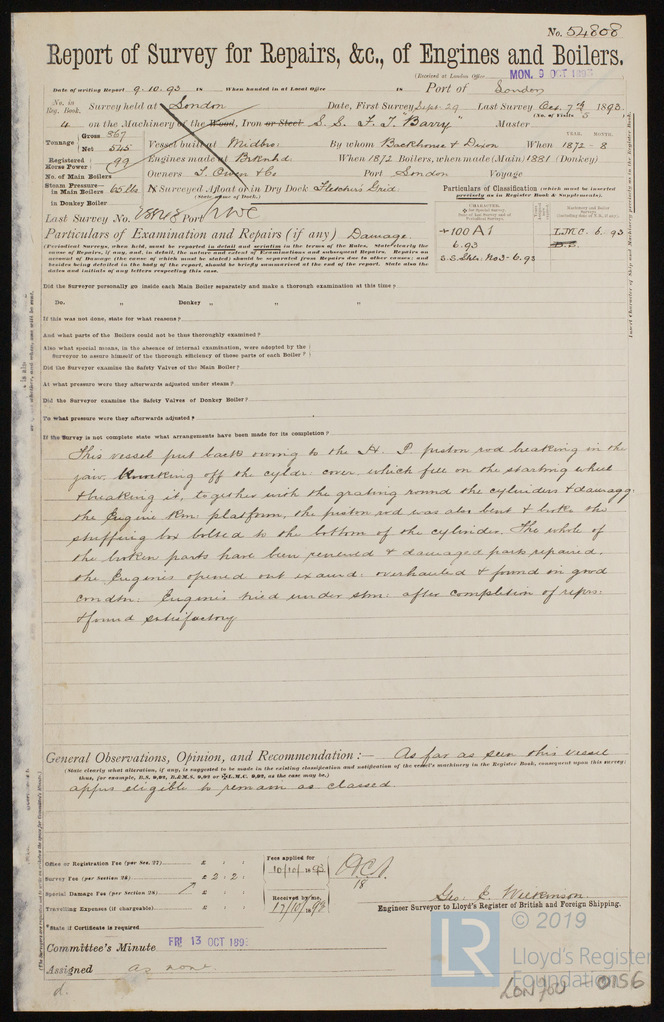 No. 54808
Report of Survey for Repairs, &c., of Engines and Boilers.
(Received at London Office MON. 9 OCT 1893
Date of writing Report 9.10.93 18 When handed in at Local Office 18 Port of London
No. in Reg. Book. Survey held at London Date, First Survey Sept. 29 Last Survey Oct. 7th 1893.
(No. of Visits 5 )
4 on the Machinery of the Wood, Iron or Steel S.S. F. T. "Barry" Master
Tonnage Gross 867 Net 545 Vessel built at Midbro: By whom Backhouse & Dixon When 1872 - 8
YEAR. MONTH.
Registered Horse Power 99 Engines made at Brknhd When 1872 Boilers, when made (Main) 1881 (Donkey)
No. of Main Boilers Owners T. Owen & Co Port London Voyage
Steam Pressure— in Main Boilers 65 lbs If Surveyed Afloat or in Dry Dock Fletchers Grid.
(State name of Dock.)
in Donkey Boiler
Last Survey No. Port
Particulars of Classification (which must be inserted precisely as in Register Book & Supplements).
Particulars of Examination and Repairs (if any) Damage.
(Periodical Surveys, when held, must be reported in detail and seriatim in the terms of the Rules. State clearly the cause of Repairs, if any, and, in detail, the nature and extent of Examinations and subsequent Repairs. Repairs on account of Damage (the cause of which must be stated) should be separated from Repairs due to other causes; and besides being detailed in the body of the report, should be briefly summarised at the end of the report. State also the dates and initials of any letters respecting this case.
+100A1 L.M.C. 6.93
6.93
S.S. No3-6.93
Did the Surveyor personally go inside each Main Boiler separately and make a thorough examination at this time?
Do. " Donkey " " "
If this was not done, state for what reasons?
And what parts of the Boilers could not be thus thoroughly examined?
Also what special means, in the absence of internal examination, were adopted by the Surveyor to assure himself of the thorough efficiency of those parts of each Boiler?
Did the Surveyor examine the Safety Valves of the Main Boiler?
At what pressure were they afterwards adjusted under steam?
Did the Surveyor examine the Safety Valves of Donkey Boiler?
To what pressure were they afterwards adjusted?
If the Survey is not complete state what arrangements have been made for its completion?
This vessel put back owing to the H. P. piston rod breaking in the
jaw. Knocking off the cyldr: cover which fell on the starting wheel
& breaking it, together with the grating round the cylinders & damagg:
the Engine Rm: platform, the piston rod was also bent & broke the
stuffing box bolted to the bottom of the cylinder. The whole of
the broken parts have been renewed & damaged parts repaired.
the Engines opened out examd: overhauled & found in good
condtn: Engines tried under stm: after completion of reprs:
& found satisfactory
General Observations, Opinion, and Recommendation:— As far as seen this vessel
(State clearly what alteration, if any, is suggested to be made in the existing classification and notification of the vessel's machinery in the Register Book, consequent upon this survey; thus, for example, B.S. 9,92, B.&M.S. 9,92 or L.M.C. 9,92, as the case may be.)
apprs eligible to remain as classed.
Office or Registration Fee (per Sec. 27) £ : :
Survey Fee (per Section 28) £ 2 : 2 :
Special Damage Fee (per Section 28) £ : :
Travelling Expenses (if chargeable) £ : :
Fees applied for
10/10/1893
Received by me,
17/10/1893
18
Geo. E. Wilkinson
Engineer Surveyor to Lloyd's Register of British and Foreign Shipping.
*State if Certificate is required
Committee's Minute FRI 13 OCT 1893
Assigned as now
d.
© 2019
LR Lloyd's Register Foundation
LON 700 - 0156